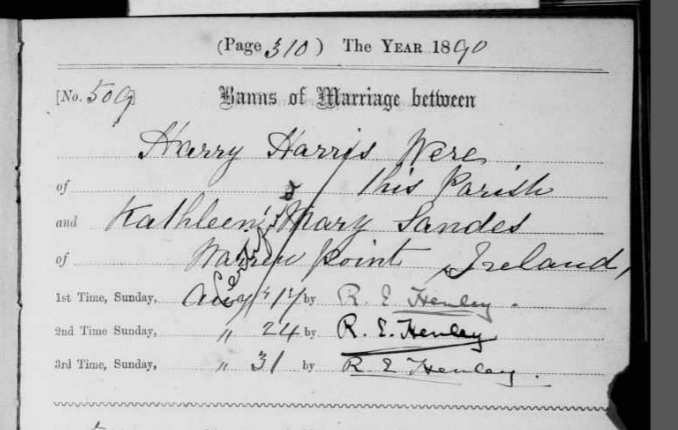 (Page 310) The YEAR 1890
[No. 509] Banns of Marriage between
Harry Harris Were
of this Parish
and Kathleen Mary Sandes
of Warren Point, Ireland,
1st Time, Sunday, Aug st 17 by R. E. Henley.
2nd Time Sunday, " 24 by R. E. Henley
3rd Time, Sunday, " 31 by R. E Henley.